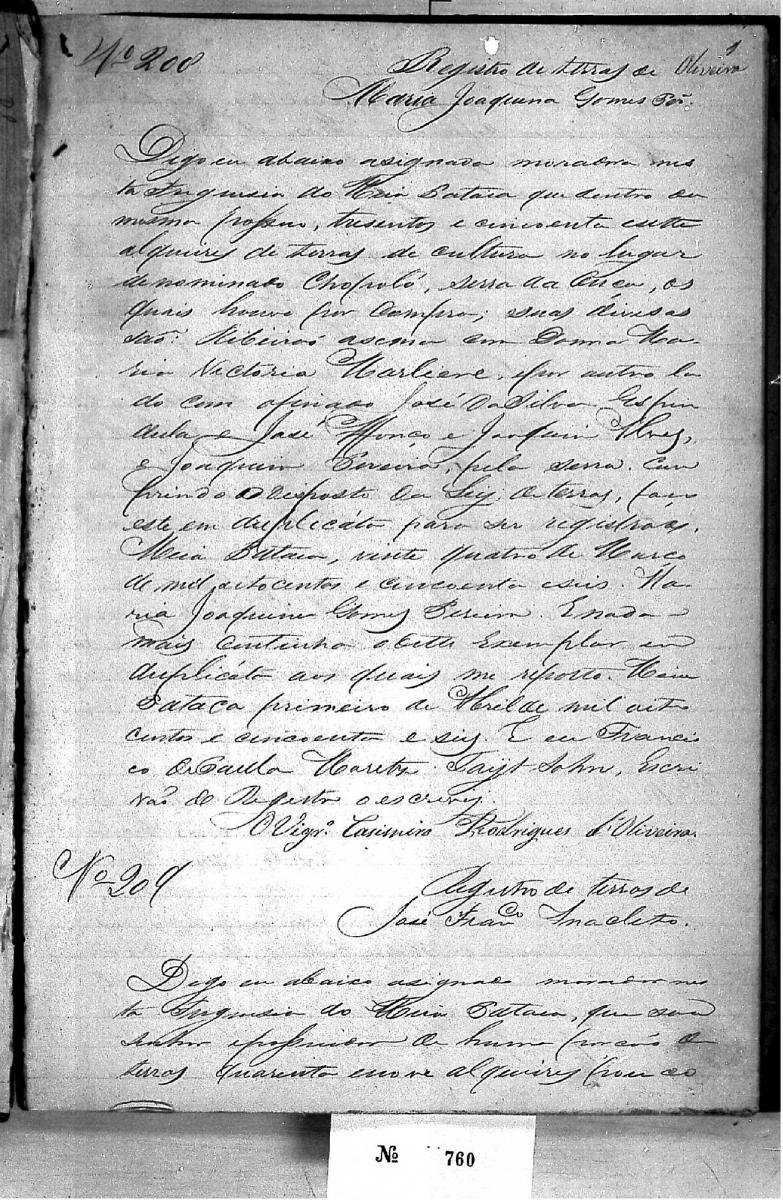 Nº 200
Registro de terras de Oliveira
Maria Joaquina Gomes Per.ª
Digo eu abaixo asignada moradora nes
ta Freguesia do Meia Pataca que dentro da
mesma posso, tresentos e cincoenta e sette
alqueires de terras de cultura no lugar
denominado Chopoló, Serra da Onça, os
quais houve por Compra; suas divisas
são: Ribeirão asema com Donna Ma
ria Victoria Marliere, por outro la
do com o finado José da Silva Espin
dula e José e Joaquim Alves,
e Joaquim Pereira, pela serra. Cum
prindo o disposto da Ley de terras, faço
este em duplicata para ser registrado.
Meia Pataca, vinte quatro de Março
de mil oitocentos e cincoenta e seis. Ma
ria Joaquina Gomes Pereira. E nada
mais continha o dette Exemplar em
duplicata aos quais me reporto. Meia
Pataca primeiro de Abril de mil oito
centos e cincoenta e seis. E eu Francis
co de Paulla Escri
vão do Registro o escrevy.
O Vigrº. Casimiro Rodrigues d'Oliveira.
Nº 201
Registro de terras de
José Franco Anacleto.
Digo eu abaixo asignado morador nes
ta Freguesia do Meia Pataca, que sou
senhor e possuidor de huma porção de
terras quarenta e nove alqueires pouco
Nº 760